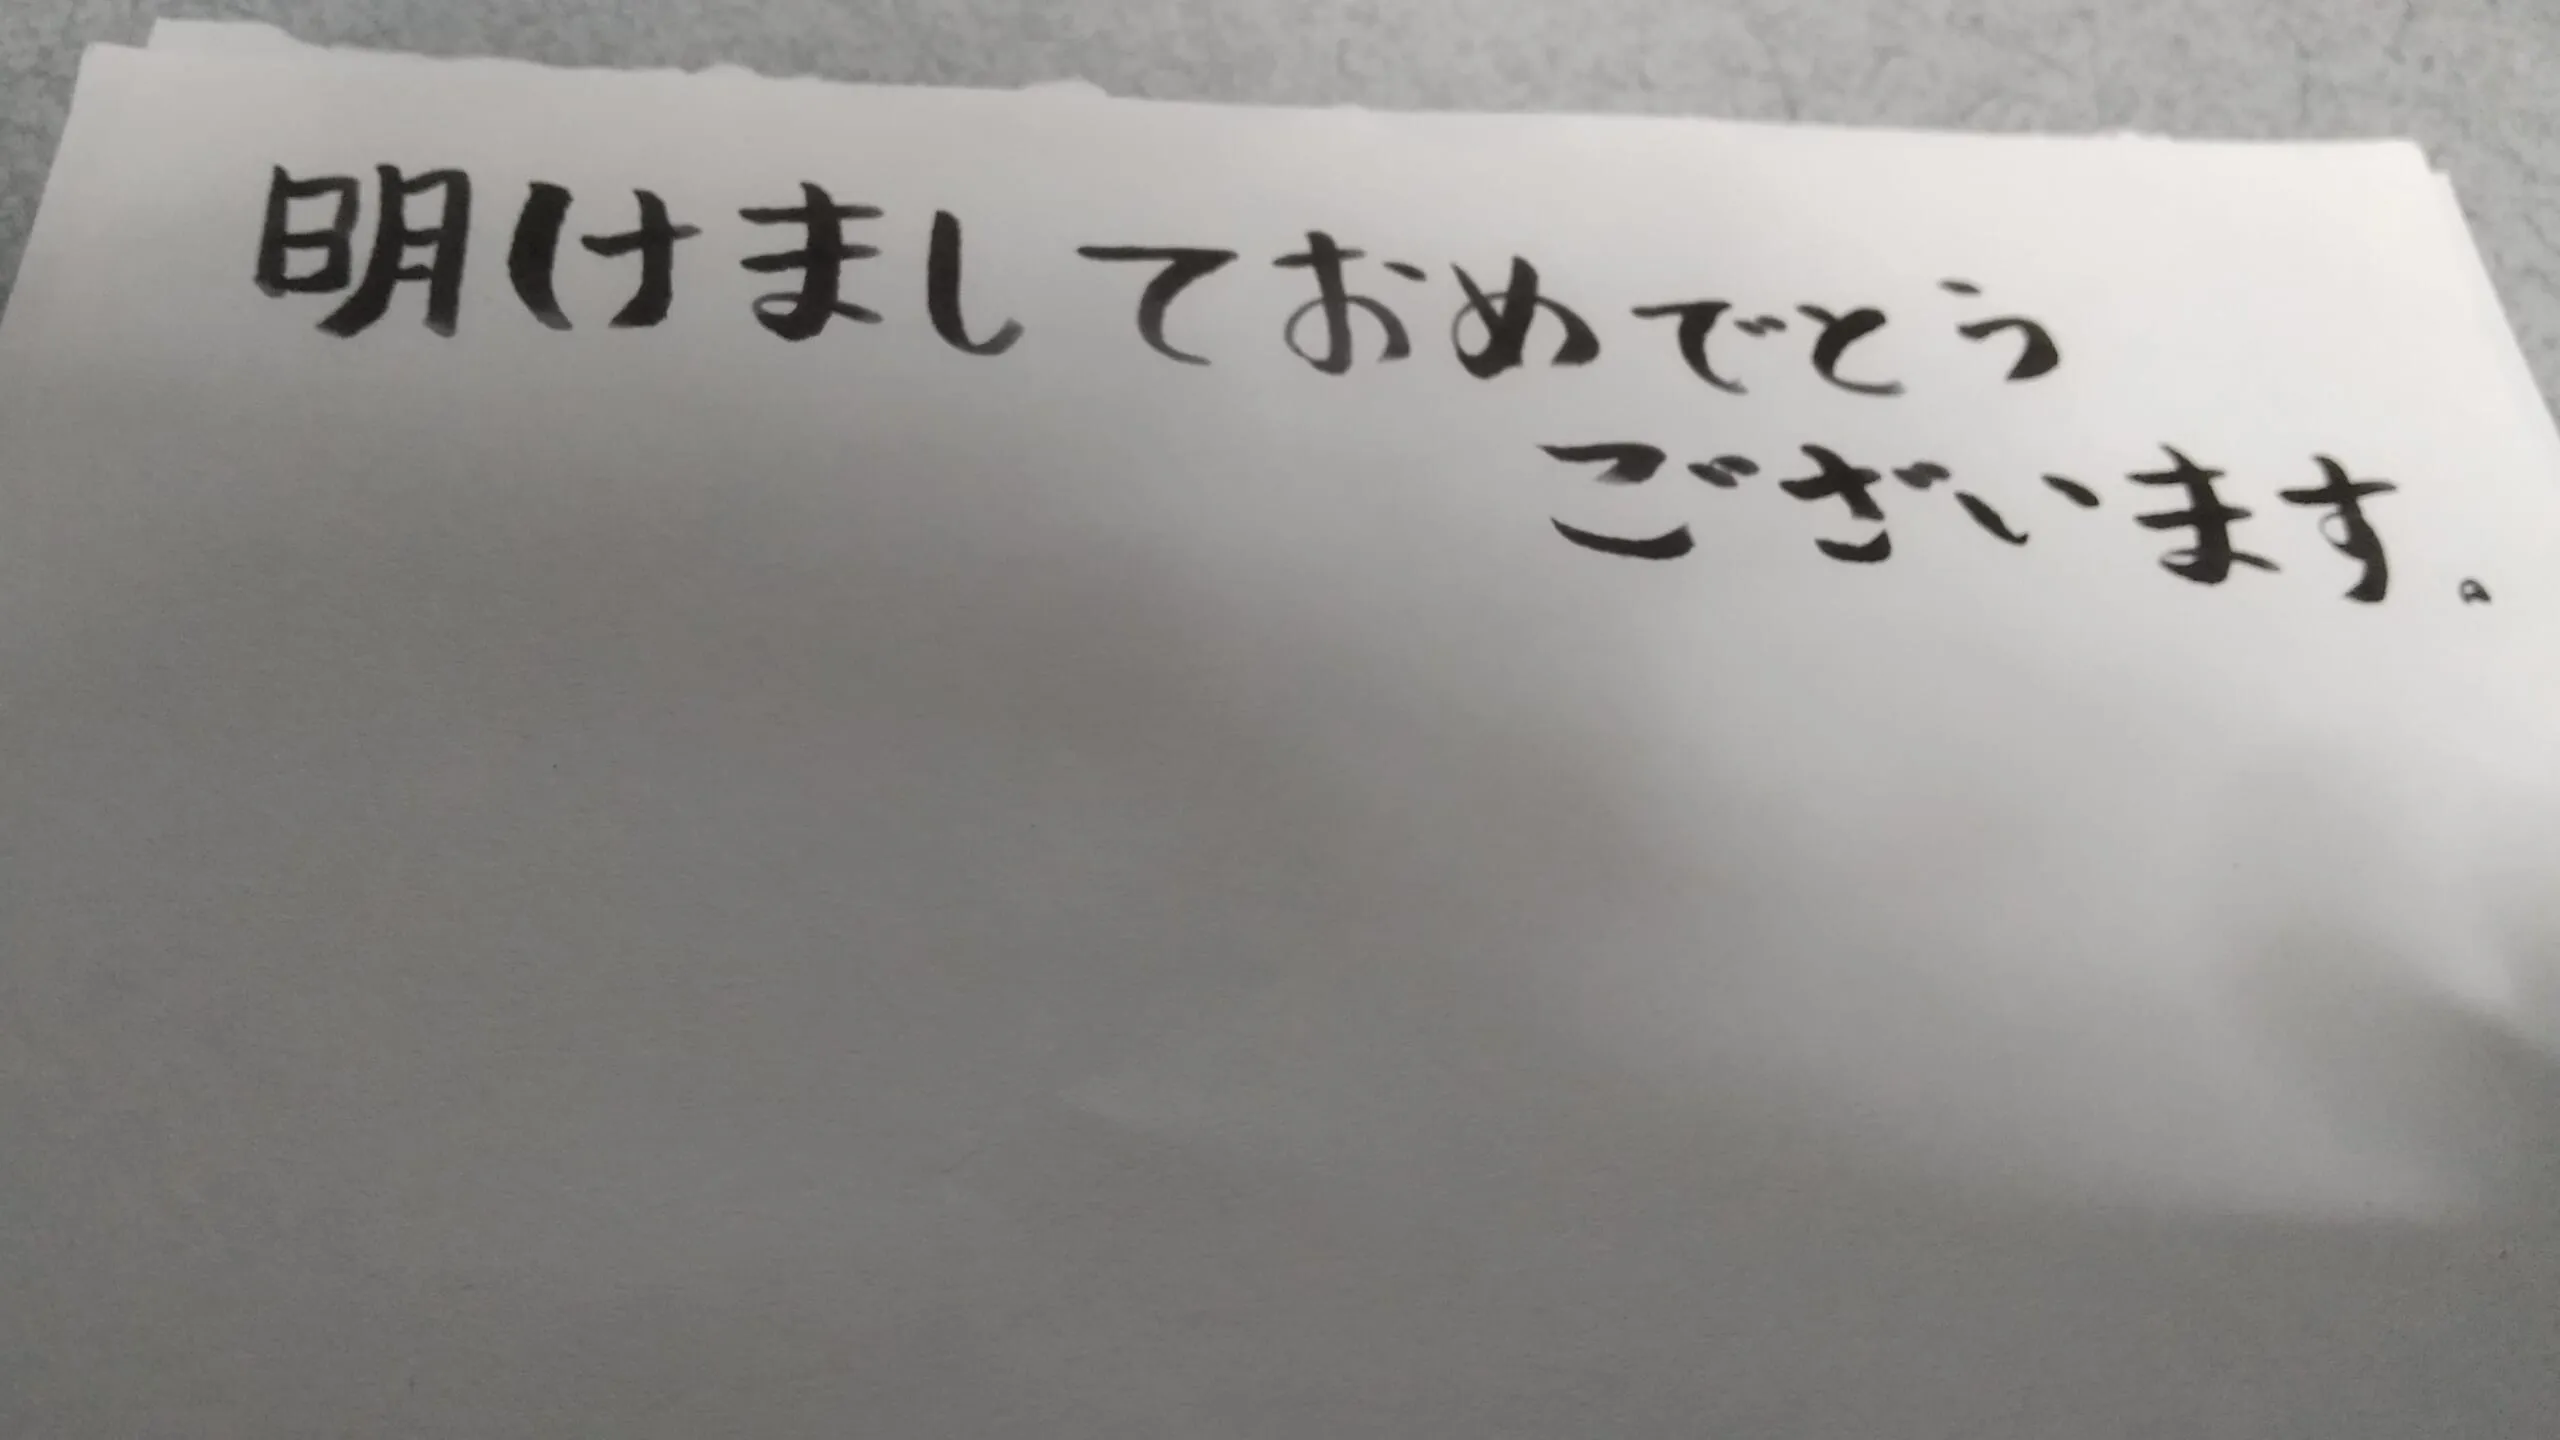 明けましておめでとう
ございます。